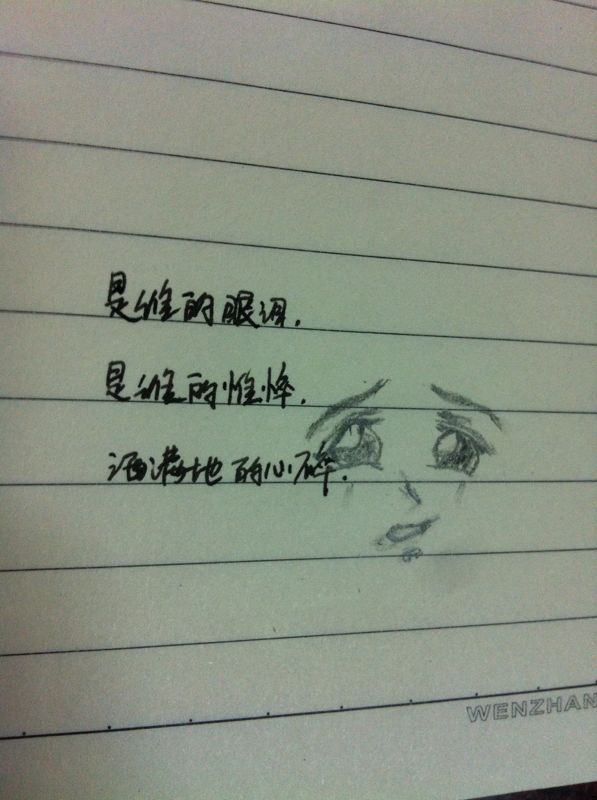 是谁的眼泪.
是谁的惟悴.
洒满地的心碎.
WENZHAN